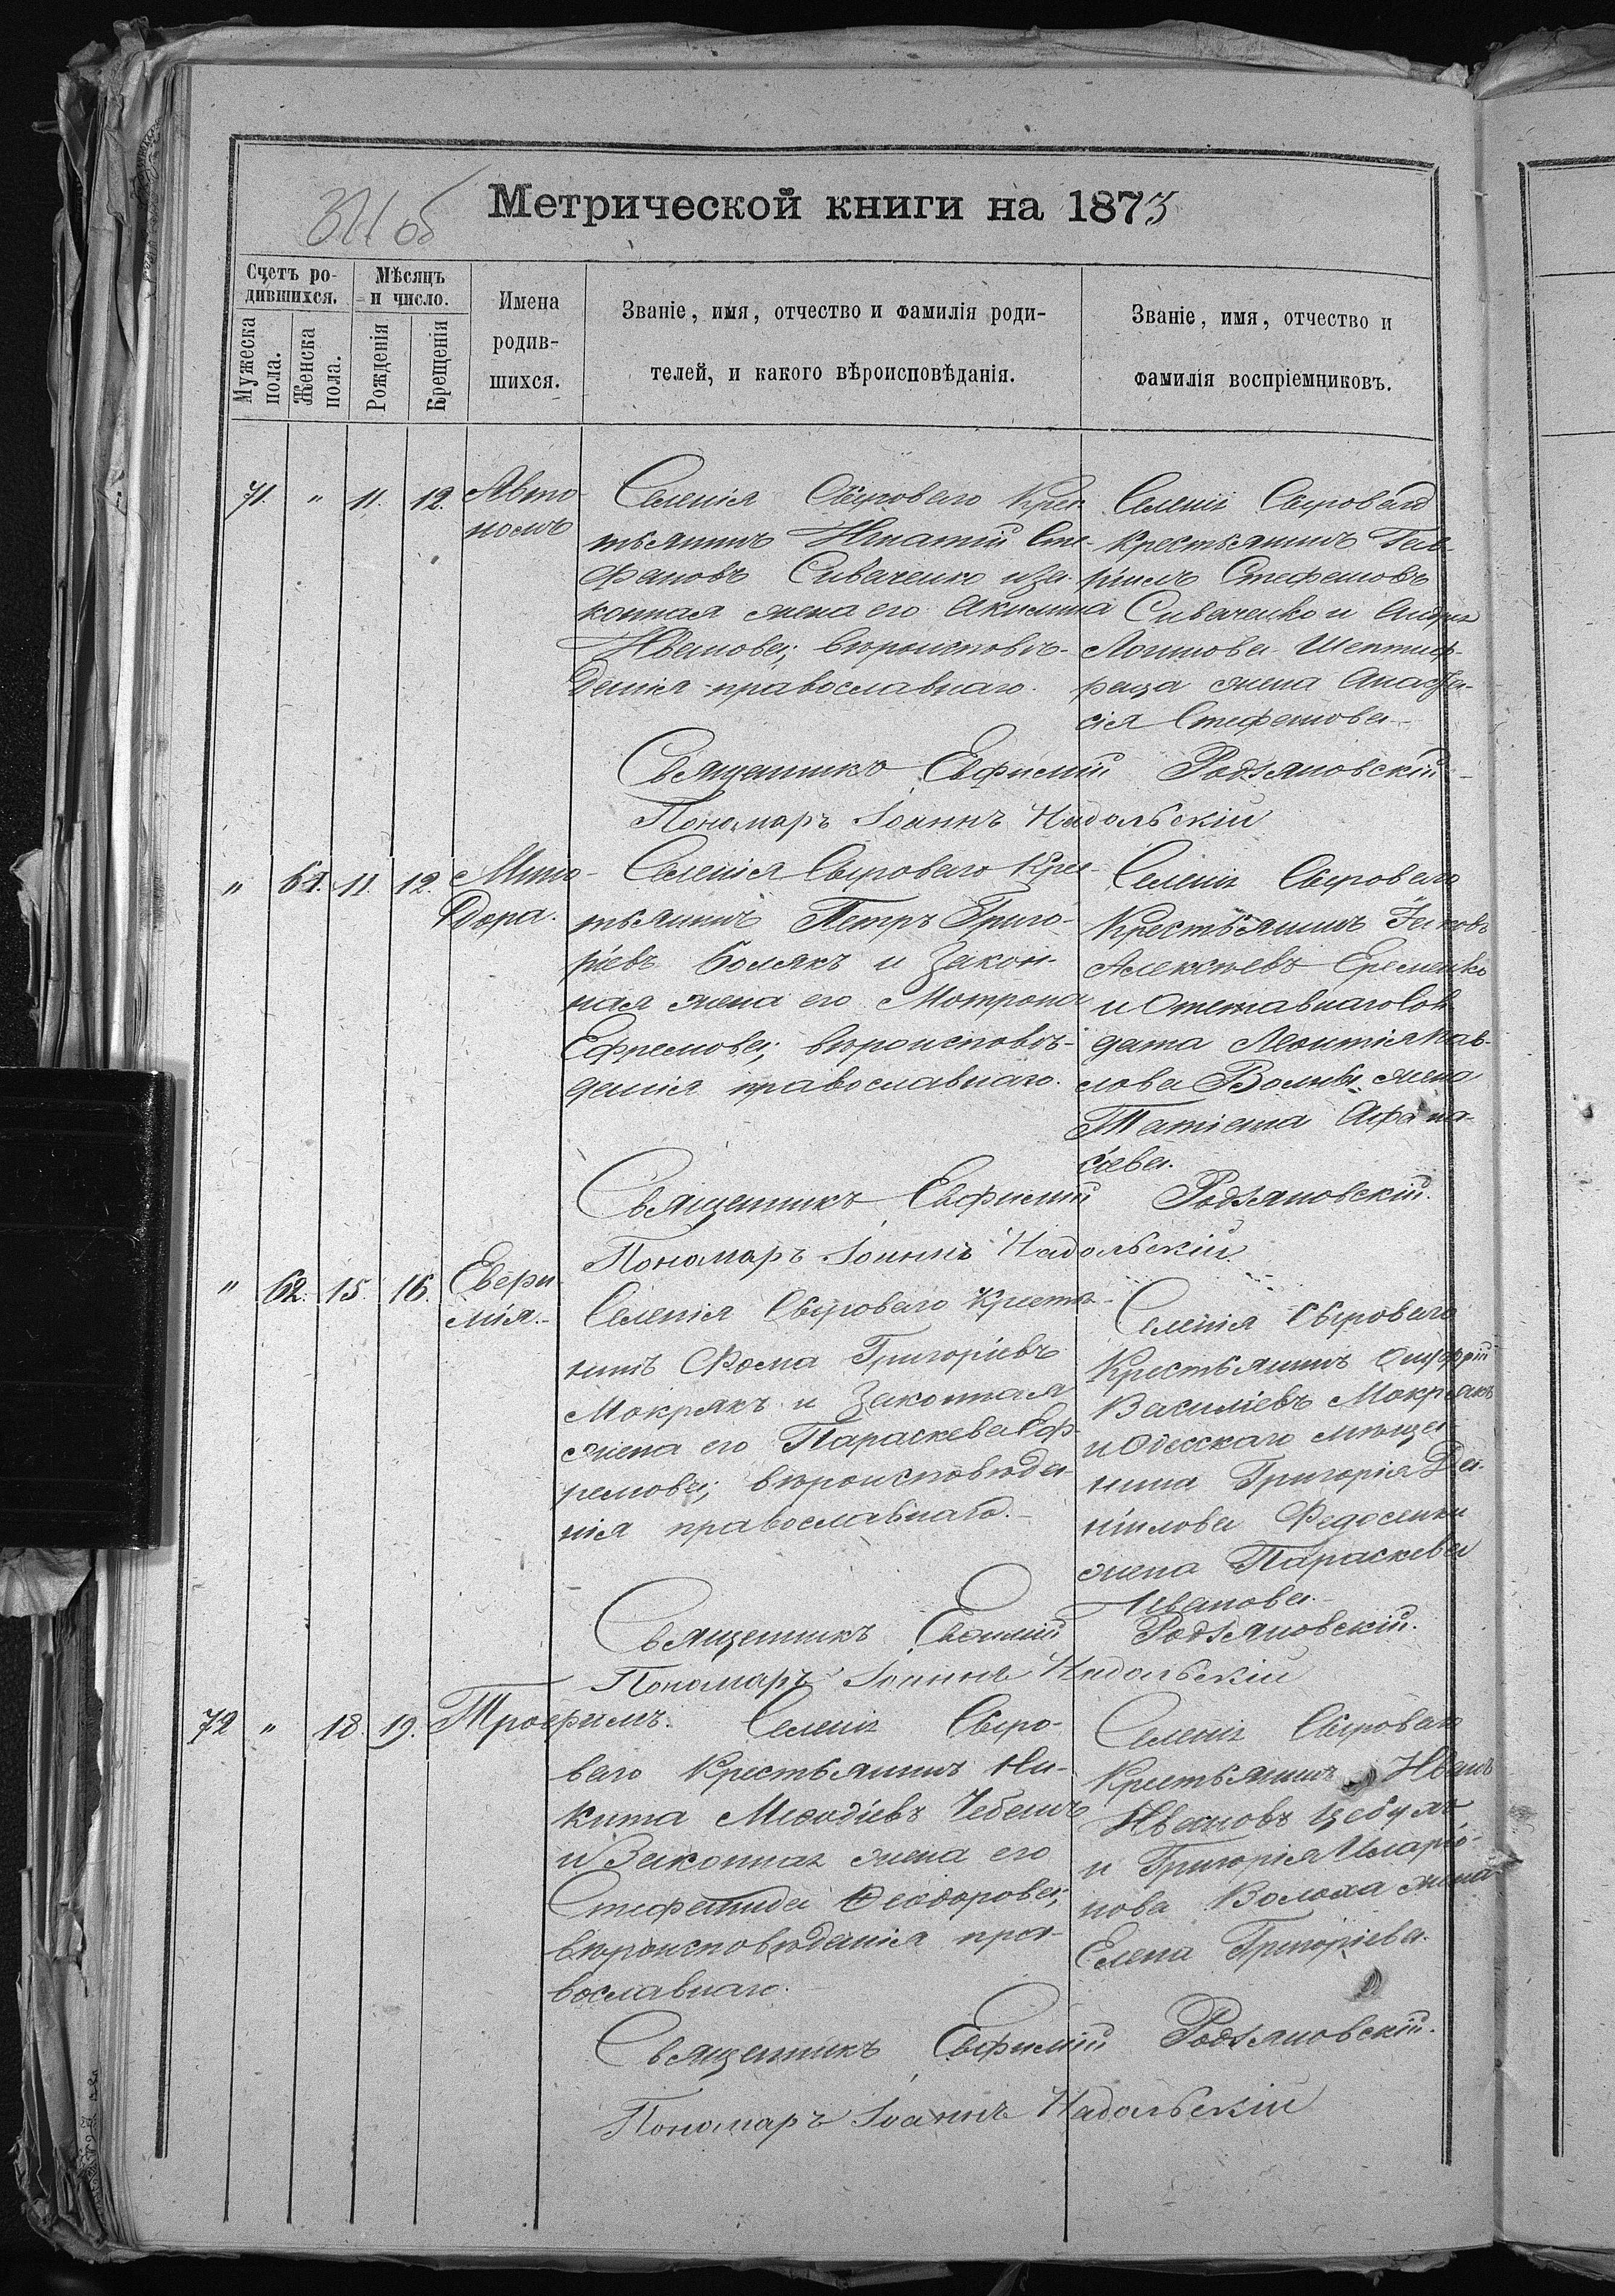 Метрической книги на 1873
Счетъ ро-
дившихся.
Мѣсяцъ
и число.
Мужеска
пола.
Женска
пола.
Рожденія
Крещенія
Имена
родив-
шихся.
Званіе, имя, отчество и фамилія роди-
телей, и какого вѣроисповѣданія.
Званіе, имя, отчество и
фамилія воспріемниковъ.
71. " 11. 12. Авто-
номъ
Селенія Сыроваго Крес-
тьянинъ Игнатій Сте-
фановъ Сиваченко и за-
конная жена его Акилина
Иванова; вѣроисповѣ-
данія православнаго.
Селенія Сыроваго
крестьянинъ Гав-
ріилъ Стефановъ
Сиваченко и Андрея
Логинова
жена Анаста-
сія Стефанова
Священникъ Евфимій Родзяновскій
Пономарь Іоаннъ Надольскій
" 61. 11. 12. Мино-
дора.
Селенія Сыроваго Крес-
тьянинъ Петръ Григо-
ріевъ Боляк и закон-
ная жена его Мотрона
Ефремова; вѣроисповѣ-
данія православнаго.
Селенія Сыроваго
Крестьянинъ Іаковъ
Алексѣевъ Еременко
и Отставнаго Сол-
дата Леонтія Пав-
лова жена
Татіана Афана-
сіева.
Священникъ Евфимій Родзяновскій.
Пономарь Іоаннъ Надольскій
" 62. 15. 16. Евфи-
мія.
Селенія Сыроваго Крестья-
нинъ Фома Григоріевъ
Мокрякъ и Законная
жена его Параскева Еф-
ремова; вѣроисповѣда-
нія православнаго.
Селенія Сыроваго
Крестьянинъ Онуфрій
Василіевъ Мокрякъ
и Одесскаго мѣща-
нина Григорія Да-
ніилова Федосенки
жена Параскева
Иванова.
Священникъ Евѳимій Родзяновскій.
Пономарь Іоаннъ Надольскій
72 " 18. 19. Трофимъ.
Селенія Сыро-
ваго Крестьянинъ Ни-
кита Меѳодіевъ Чебанъ
и Законная жена его
Стефанида Ѳеодорова;
вѣроисповѣданія пра-
вославнаго.
Селенія Сыроваго
Крестьянинъ Иванъ
Ивановъ Цебуля
и Григорія Иларіо-
нова Волоха жена
Елена Григоріева.
Священникъ Евфимій Родзяновскій.
Пономарь Іоаннъ Надольскій